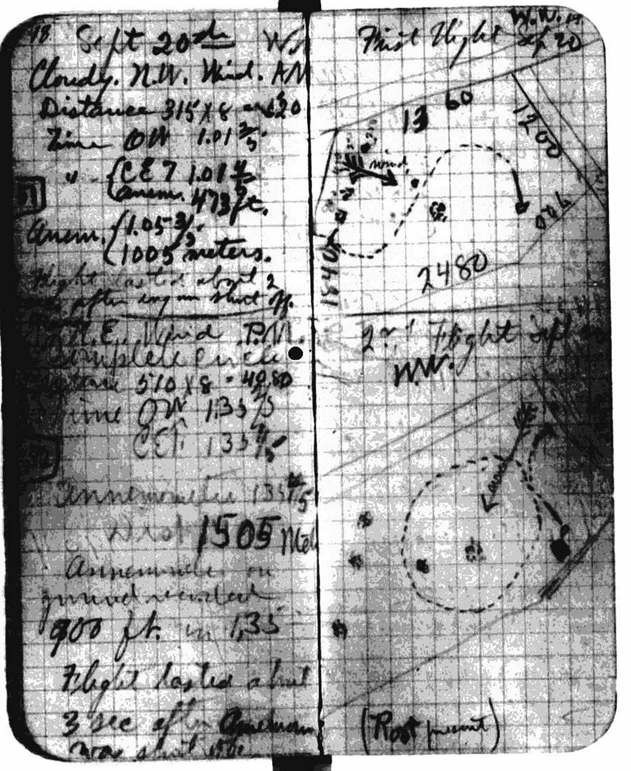 Sept 20th
Cloudy. N.W. Wind. AM
Distance 315 x 8 = 2520
Time OW 1.01 2/5
" { CET 1.01 4/5
anem. 473 ft.
Anem. { 1.05 3/5
1005 meters.
Flight lasted about 2
after engine shut off.
N.E. Wind P.M.
Complete Circle
510 x 8 = 4080
Time OW 1.35 2/5
CET 1.35 4/5
Annemometer 135
Dist 1505 Met
Annemometer on
ground recorded
900 ft. in 1,35
Flight lasted about
3 sec after Anemom
was shut off.
First Flight W.W.
Sep 20
13 60
1200
wind
700
1840
2480
2nd Flight Sept
W.W.
wind
(Root present)